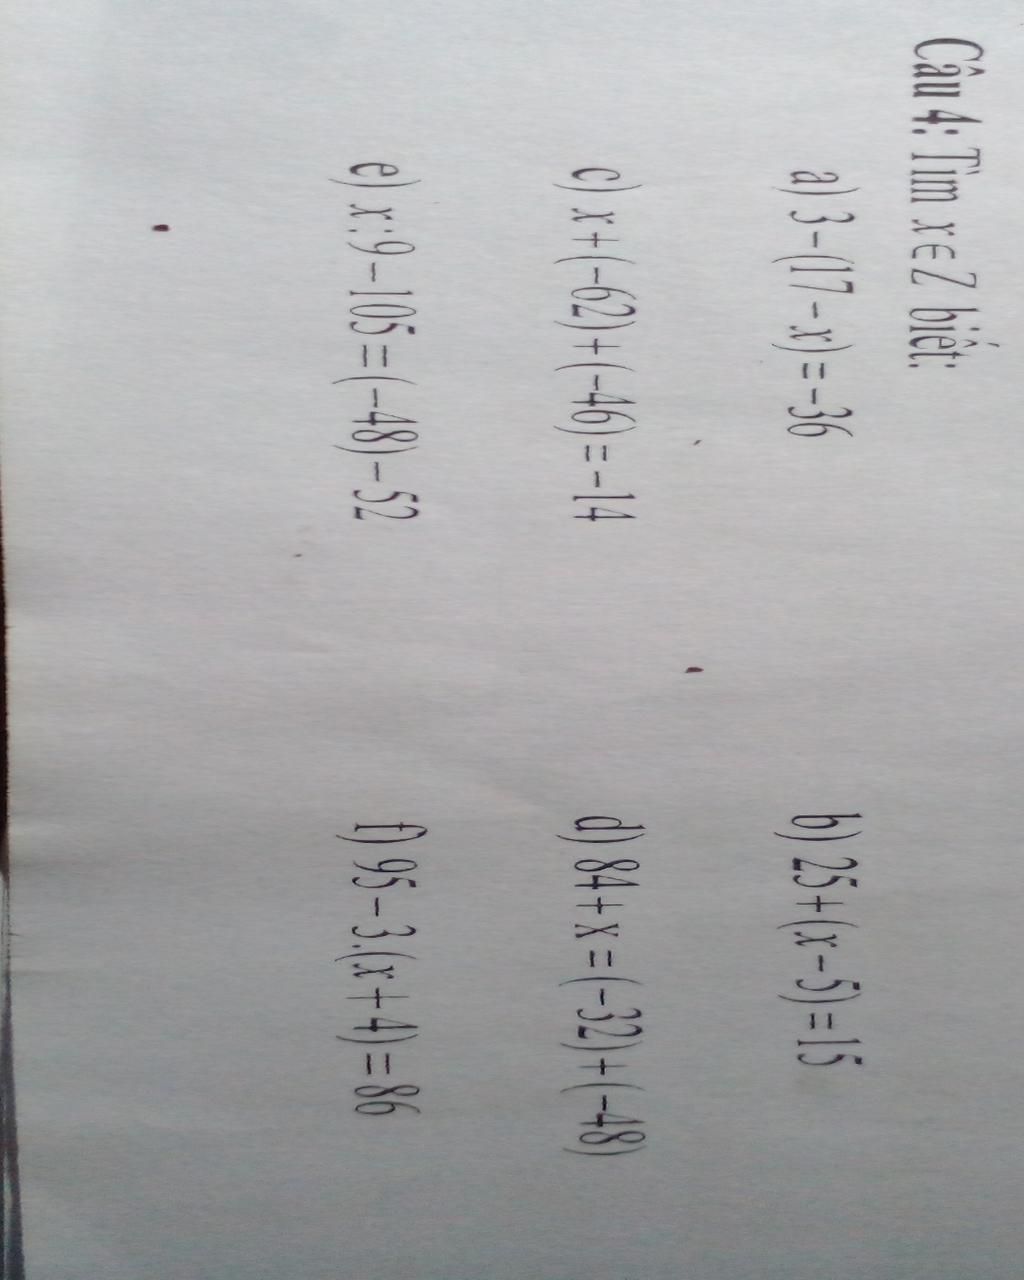 Câu 4: Tìm x ∈ Z biết:
a) 3 – (17 – x) = –36 b) 25 + (x – 5) = 15
c) x + (–62) + (–46) = –14 d) 84 + x = (–32) + (–48)
e) x : 9 – 105 = (–48) – 52 f) 95 – 3.(x + 4) = 86